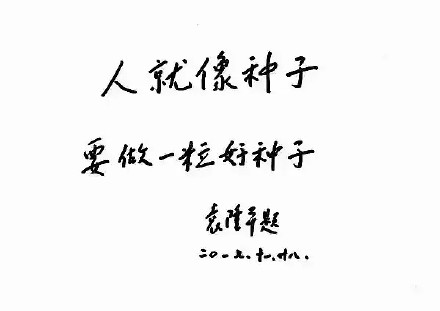 人就像种子
要做一粒好种子
袁隆平题
二〇一九.十一.廿八.